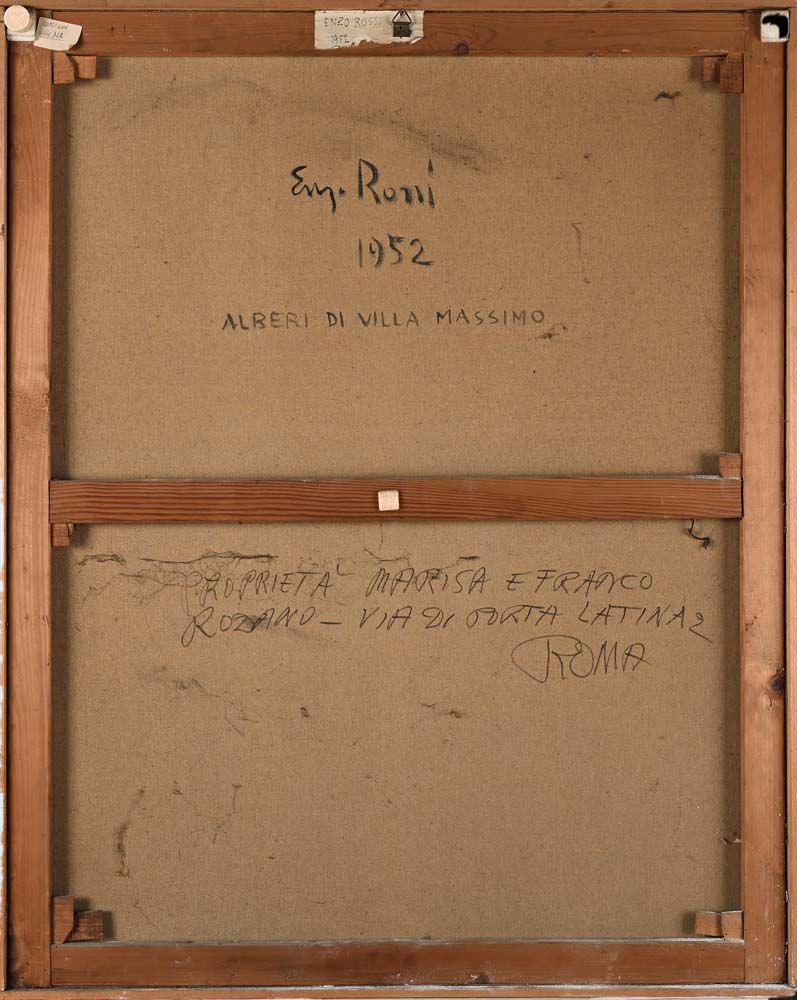 ROMA
ENZO ROSSI
1952
Enz. Rossi
1952
ALBERI DI VILLA MASSIMO
PROPRIETA' MARISA E FRANCO
ROZANO - VIA DI PORTA LATINA 2
ROMA